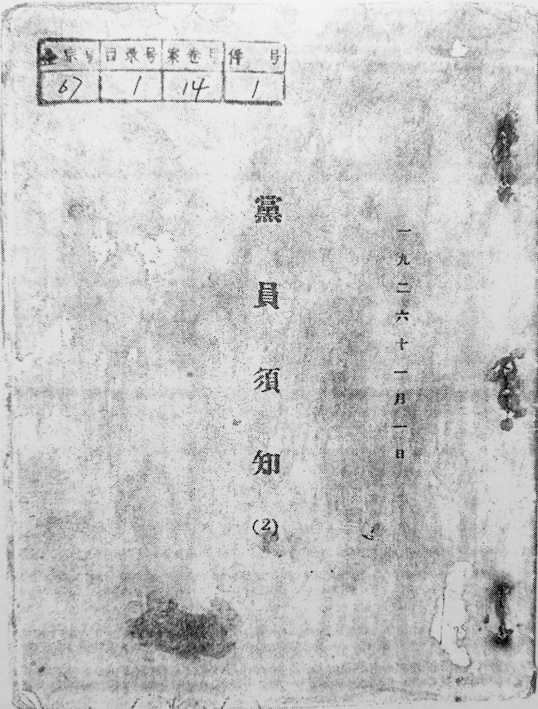 全宗号 目录号 案卷号 件 号
67 1 14 1
一九二六十一月一日
黨員須知
(2)